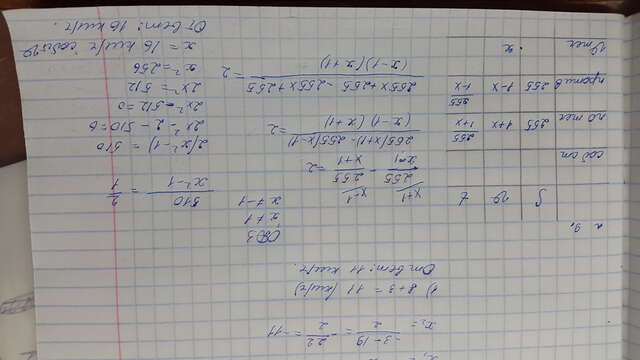 x₂ = -3-19/2 = -22/2 = -11
1) 8+3 = 11 (км/ч)
Ответ: 11 км/ч.
n 9,
S V t
соб ст
по теч 255 1+x 255/1+x
против 255 1-x 255/1-x
V теч · x
ОДЗ
x ≠ 1
x ≠ -1
x+1/ 255/x-1 - x-1/ 255/x+1 = 2
255(x+1)-255(x-1)/(x-1)(x+1) = 2
255x+255-255x+255/(x-1)(x+1) = 2
510/x²-1 = 2/1
2(x²-1) = 510
2x²-2-510=0
2x²-512=0
2x² = 512
x² = 256
x = 16 км/ч собст V
Ответ: 16 км/ч.